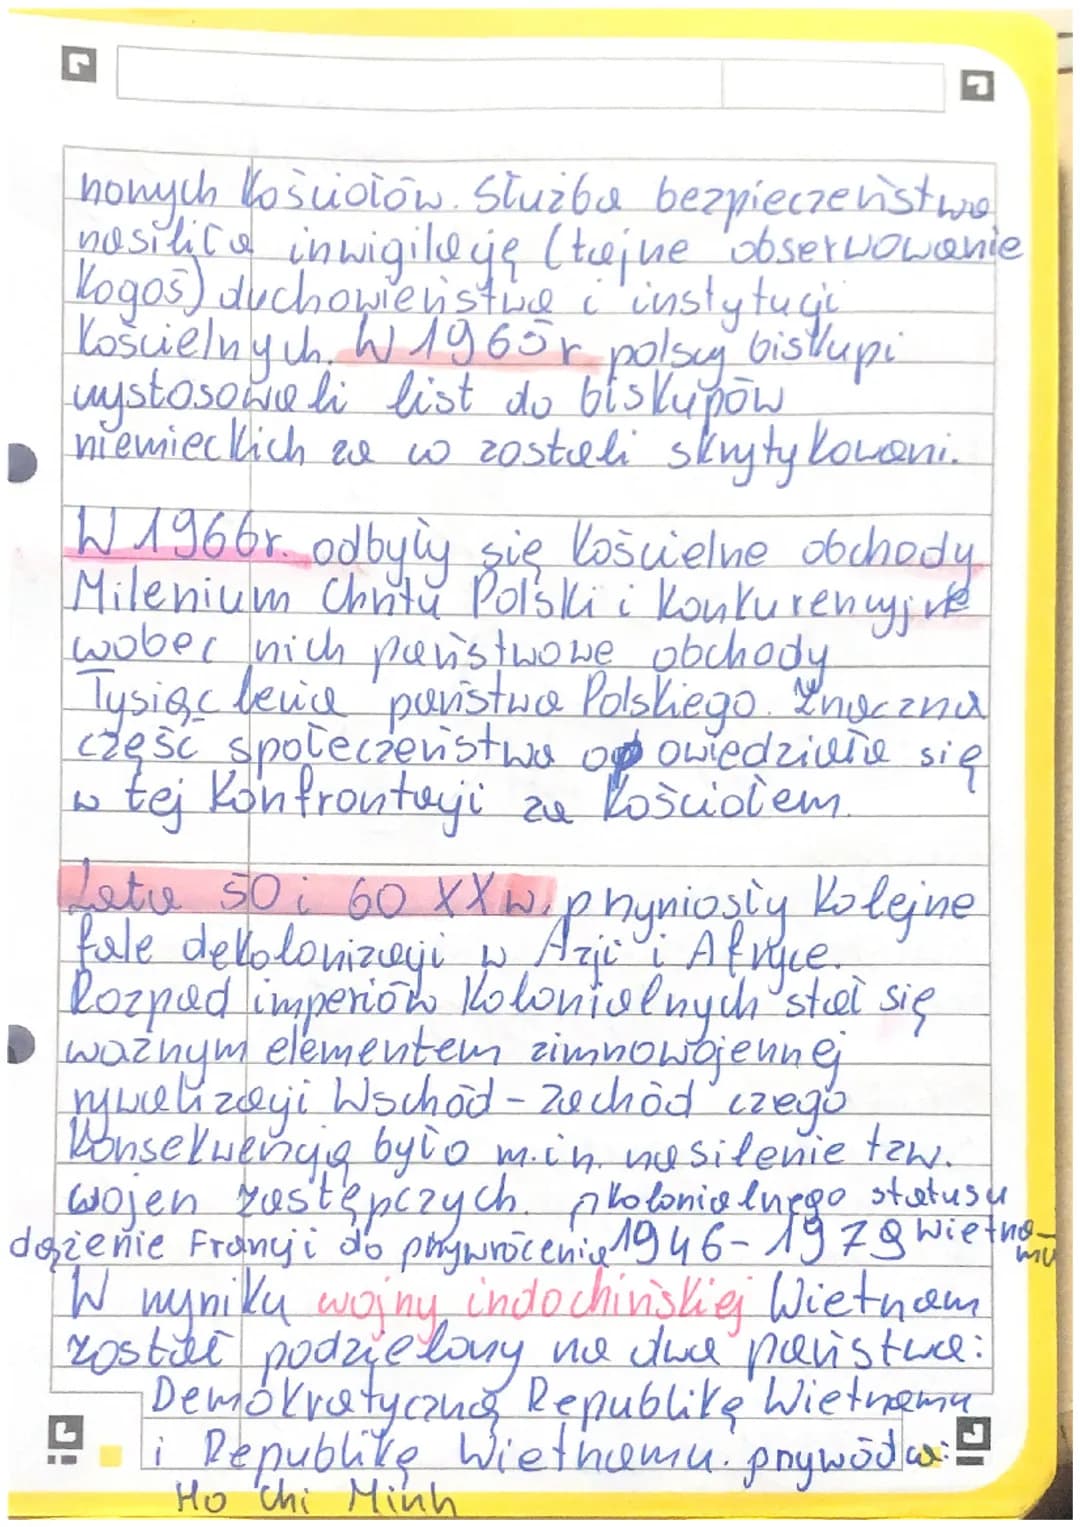 nowych kościołów. Służba bezpieczeństwa
nasiliła inwigilację (tajne obserwowanie
kogoś) duchowieństwa i instytucji
kościelnych. W 1965r polscy biskupi
wystosowali list do biskupów
niemieckich za co zostali skrytykowani.
W 1966r. odbyły się kościelne obchody
Milenium Chrztu Polski i konkurencyjne
wobec nich państwowe obchody
Tysiąclecia państwa Polskiego. Znaczna
część społeczeństwa opowiedziała się
w tej konfrontacji za kościołem.
Lata 50 i 60 XXw. przyniosły kolejne
fale dekolonizacji w Azji i Afryce.
Rozpad imperiów kolonialnych stał się
ważnym elementem zimnowojennej
rywalizacji Wschód - Zachód czego
konsekwencją było m.in. nasilenie tzw.
wojen zastępczych. kolonialnego statusu
dążenie Francji do przywrócenia 1946-1979 Wietna-
mu
W wyniku wojny indochińskiej Wietnam
został podzielony na dwa państwa:
Demokratyczną Republikę Wietnamu
i Republikę Wietnamu. przywódca:
Ho Chi Minh